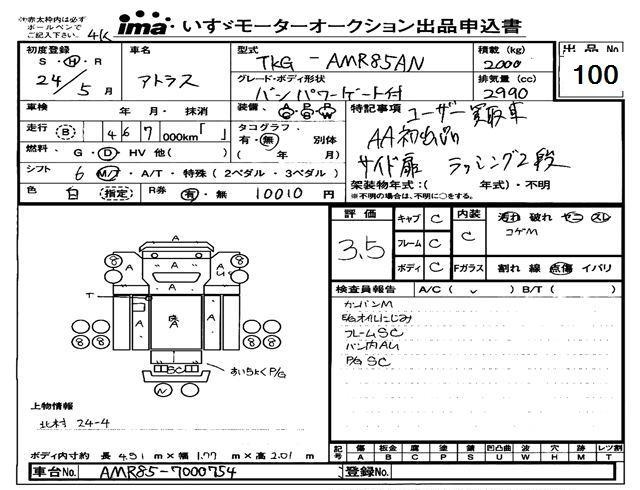 ㊟赤太枠内は必ず
ボールペンで
ご記入下さい。
4K
ima いすゞモーターオークション出品申込書
初度登録
S・H・R
24年5月
車名
アトラス
型式
TKG-AMR85AN
グレード・ボディ形状
バン パワーゲート付
積載(kg)
2000
排気量(cc)
2990
出品No
100
車検 年 月・抹消
装備
走行 B 467 000km「 」
タコグラフ 有・無 別体
( 年 月)
燃料 G・D・HV 他( )
シフト 6 M/T・A/T・特殊(2ペダル・3ペダル)
色 白(指定)
R券 有・無 10010円
特記事項
ユーザー買取車
AA初出品
サイド扉 ラッシング2段
架装物年式:( 年式)・不明
※不明の場合は、不明に○をする。
評価
3.5
キャブ C
フレーム C
ボディ C
内装 C
汚れ 破れ ヤニ スレ
コゲM
Fガラス 割れ 線 点傷 イバリ
検査員報告 A/C( ✓ ) B/T( )
カンバンM
E/Gオイルにじみ
フレームSC
バン内AU
P/G SC
A
8 A A 8
8 A AU 8
T
A A A A
SC
N
すいちょくP/G
上物情報
北村 24-4
ボディ内寸約 長 4.51 m×幅 1.77 m×高 2.01 m
記号 傷 板金 腐 塗 錆 凹凸曲 波 穴 跡 レツ割
A B C P S U W H M T
車台No. AMR85-7000754
登録No.